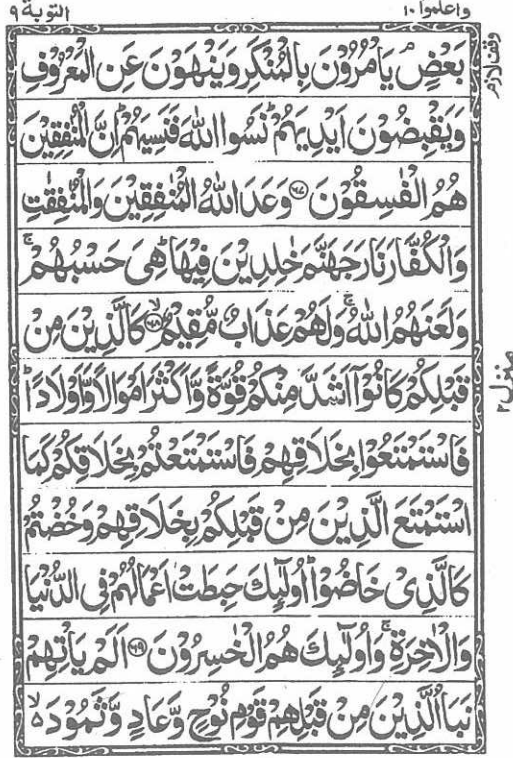 واعلموا ١٠
التوبة ٩
بَعْضٍ ۘ يَاْمُرُوْنَ بِالْمُنْكَرِ وَيَنْهَوْنَ عَنِ الْمَعْرُوْفِ
وَيَقْبِضُوْنَ اَيْدِيَهُمْ ؕ نَسُوا اللّٰهَ فَنَسِيَهُمْ ؕ اِنَّ الْمُنٰفِقِيْنَ
هُمُ الْفٰسِقُوْنَ ﴿۶۷﴾ وَعَدَ اللّٰهُ الْمُنٰفِقِيْنَ وَالْمُنٰفِقٰتِ
وَالْكُفَّارَ نَارَ جَهَنَّمَ خٰلِدِيْنَ فِيْهَا ؕ هِيَ حَسْبُهُمْ ۚ
وَلَعَنَهُمُ اللّٰهُ ۚ وَلَهُمْ عَذَابٌ مُّقِيْمٌ ﴿۶۸﴾ۙ كَالَّذِيْنَ مِنْ
قَبْلِكُمْ كَانُوْۤا اَشَدَّ مِنْكُمْ قُوَّةً وَّاَكْثَرَ اَمْوَالًا وَّاَوْلَادًا ؕ
فَاسْتَمْتَعُوْا بِخَلَاقِهِمْ فَاسْتَمْتَعْتُمْ بِخَلَاقِكُمْ كَمَا
اسْتَمْتَعَ الَّذِيْنَ مِنْ قَبْلِكُمْ بِخَلَاقِهِمْ وَخُضْتُمْ
كَالَّذِيْ خَاضُوْا ؕ اُولٰٓئِكَ حَبِطَتْ اَعْمَالُهُمْ فِي الدُّنْيَا
وَالْاٰخِرَةِ ۚ وَاُولٰٓئِكَ هُمُ الْخٰسِرُوْنَ ﴿۶۹﴾ اَلَمْ يَاْتِهِمْ
نَبَاُ الَّذِيْنَ مِنْ قَبْلِهِمْ قَوْمِ نُوْحٍ وَّعَادٍ وَّثَمُوْدَ ۙ۬
وقف لازم
منزل ٢